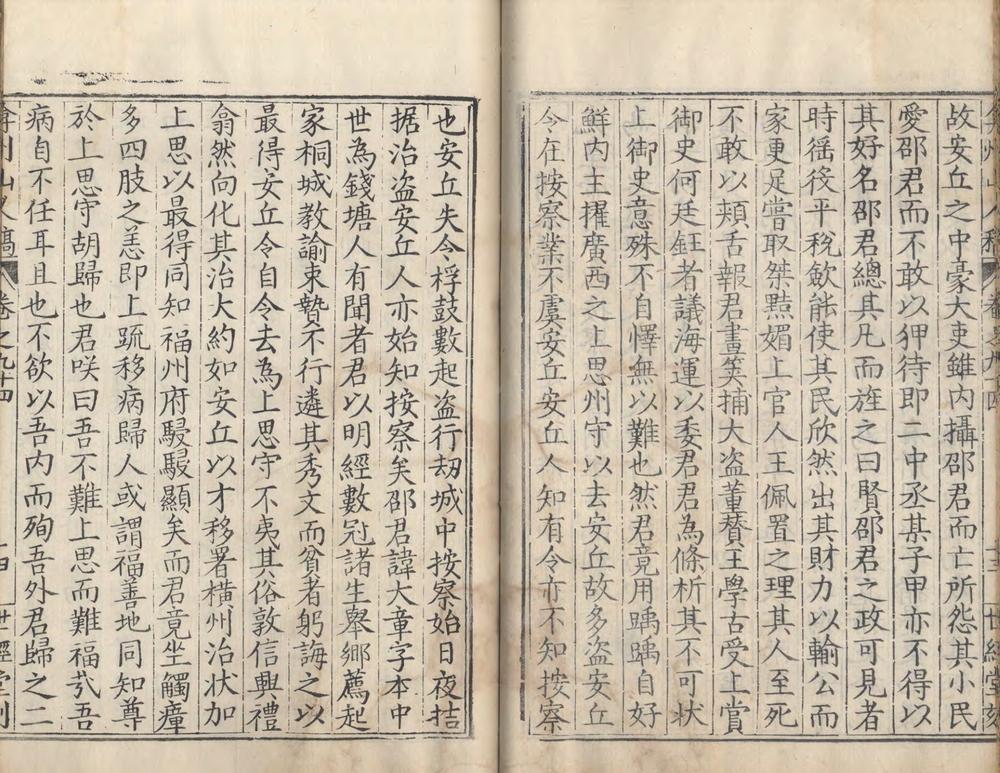 故安丘之中豪大吏雖内攝邵君而亡所怨其小民
愛邵君而不敢以狎待即二中丞某子甲亦不得以
其好名邵君總其凡而旌之曰賢邵君之政可見者
時徭役平稅歛能使其民欣然出其財力以輸公而
家更足嘗取桀黠媚上官人王佩置之理其人至死
不敢以頰舌報君畫筴捕大盗董賛王學古受上賞
御史何廷鈺者議海運以委君君為條析其不可狀
上御史意殊不自懌無以難也然君竟用踽踽自好
鮮内主擢廣西之上思州守以去安丘故多盗安丘
令在按察業不虞安丘安丘人知有令亦不知按察
也安丘失令桴鼓數起盗行刼城中按察始日夜拮
据治盗安丘人亦始知按察矣邵君諱大章字本中
世為錢塘人有聞者君以明經數冠諸生舉鄉薦起
家桐城教諭束贄不行遴其秀文而貧者躬誨之以
最得安丘令自令去為上思守不夷其俗敦信興禮
翕然向化其治大約如安丘以才移署橫州治狀加
上思以最得同知福州府駸駸顯矣而君竟坐觸瘴
多四肢之恙即上疏移病歸人或謂福善地同知尊
於上思守胡歸也君咲曰吾不難上思而難福㢤吾
病自不任耳且也不欲以吾内而殉吾外君歸之二
卷之九十四 十四 世經堂刻